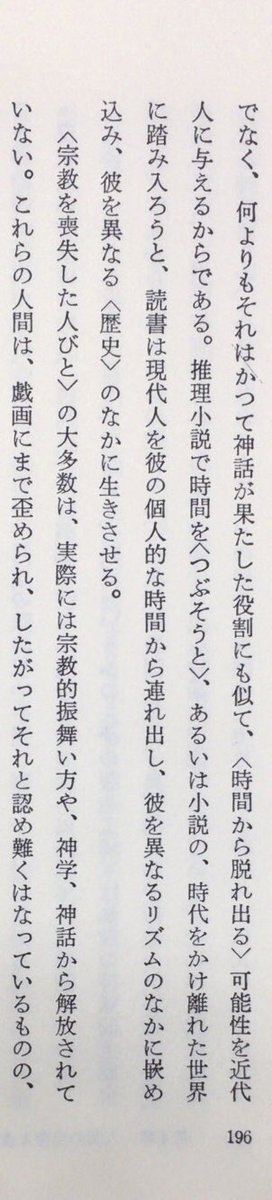 でなく、何よりもそれはかつて神話が果たした役割にも似て、〈時間から脱れ出る〉可能性を近代
人に与えるからである。推理小説で時間を〈つぶそうと〉、あるいは小説の、時代をかけ離れた世界
に踏み入ろうと、読書は現代人を彼の個人的な時間から連れ出し、彼を異なるリズムのなかに嵌め
込み、彼を異なる〈歴史〉のなかに生きさせる。
〈宗教を喪失した人びと〉の大多数は、実際には宗教的振舞い方や、神学、神話から解放されて
いない。これらの人間は、戯画にまで歪められ、したがってそれと認め難くはなっているものの、
196